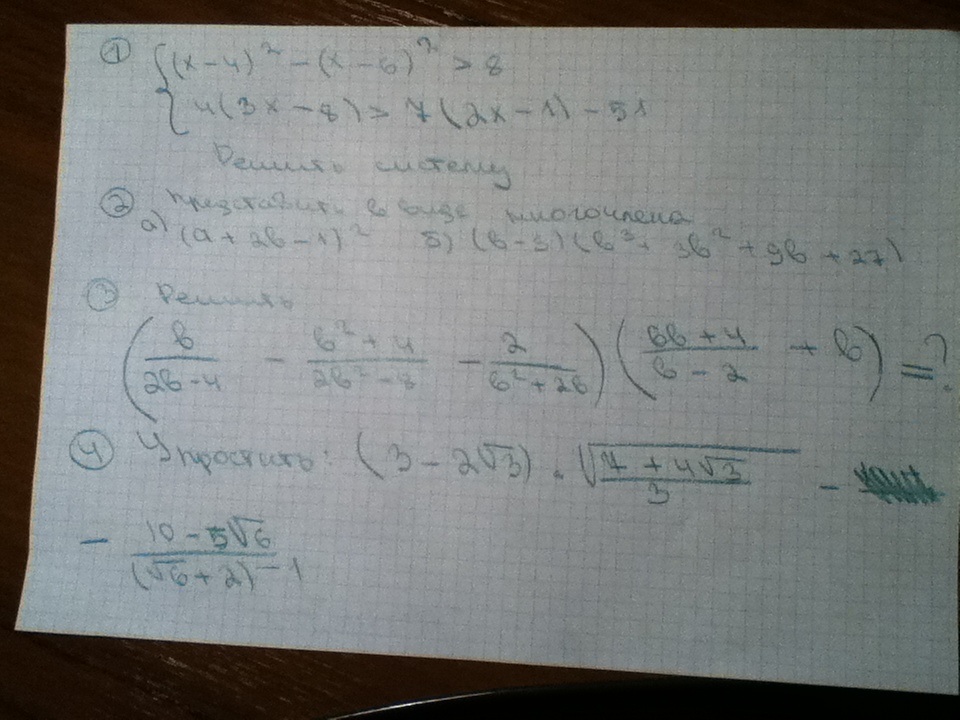 ① { (x-4)² - (x-6)² > 8
{ 4(3x-8) > 7(2x-1) - 51
Решить систему
② Представить в виде многочлена
а) (a+2b-1)² б) (b-3)(b³+3b²+9b+27)
③ Решить
(b/(2b-4) - (b²+4)/(2b²-8) - 2/(b²+2b)) ((6b+4)/(b-2) + b) = ?
④ Упростить: (3-2√3) · √((7+4√3)/3) -
- (10-5√6)/(√6+2)⁻¹